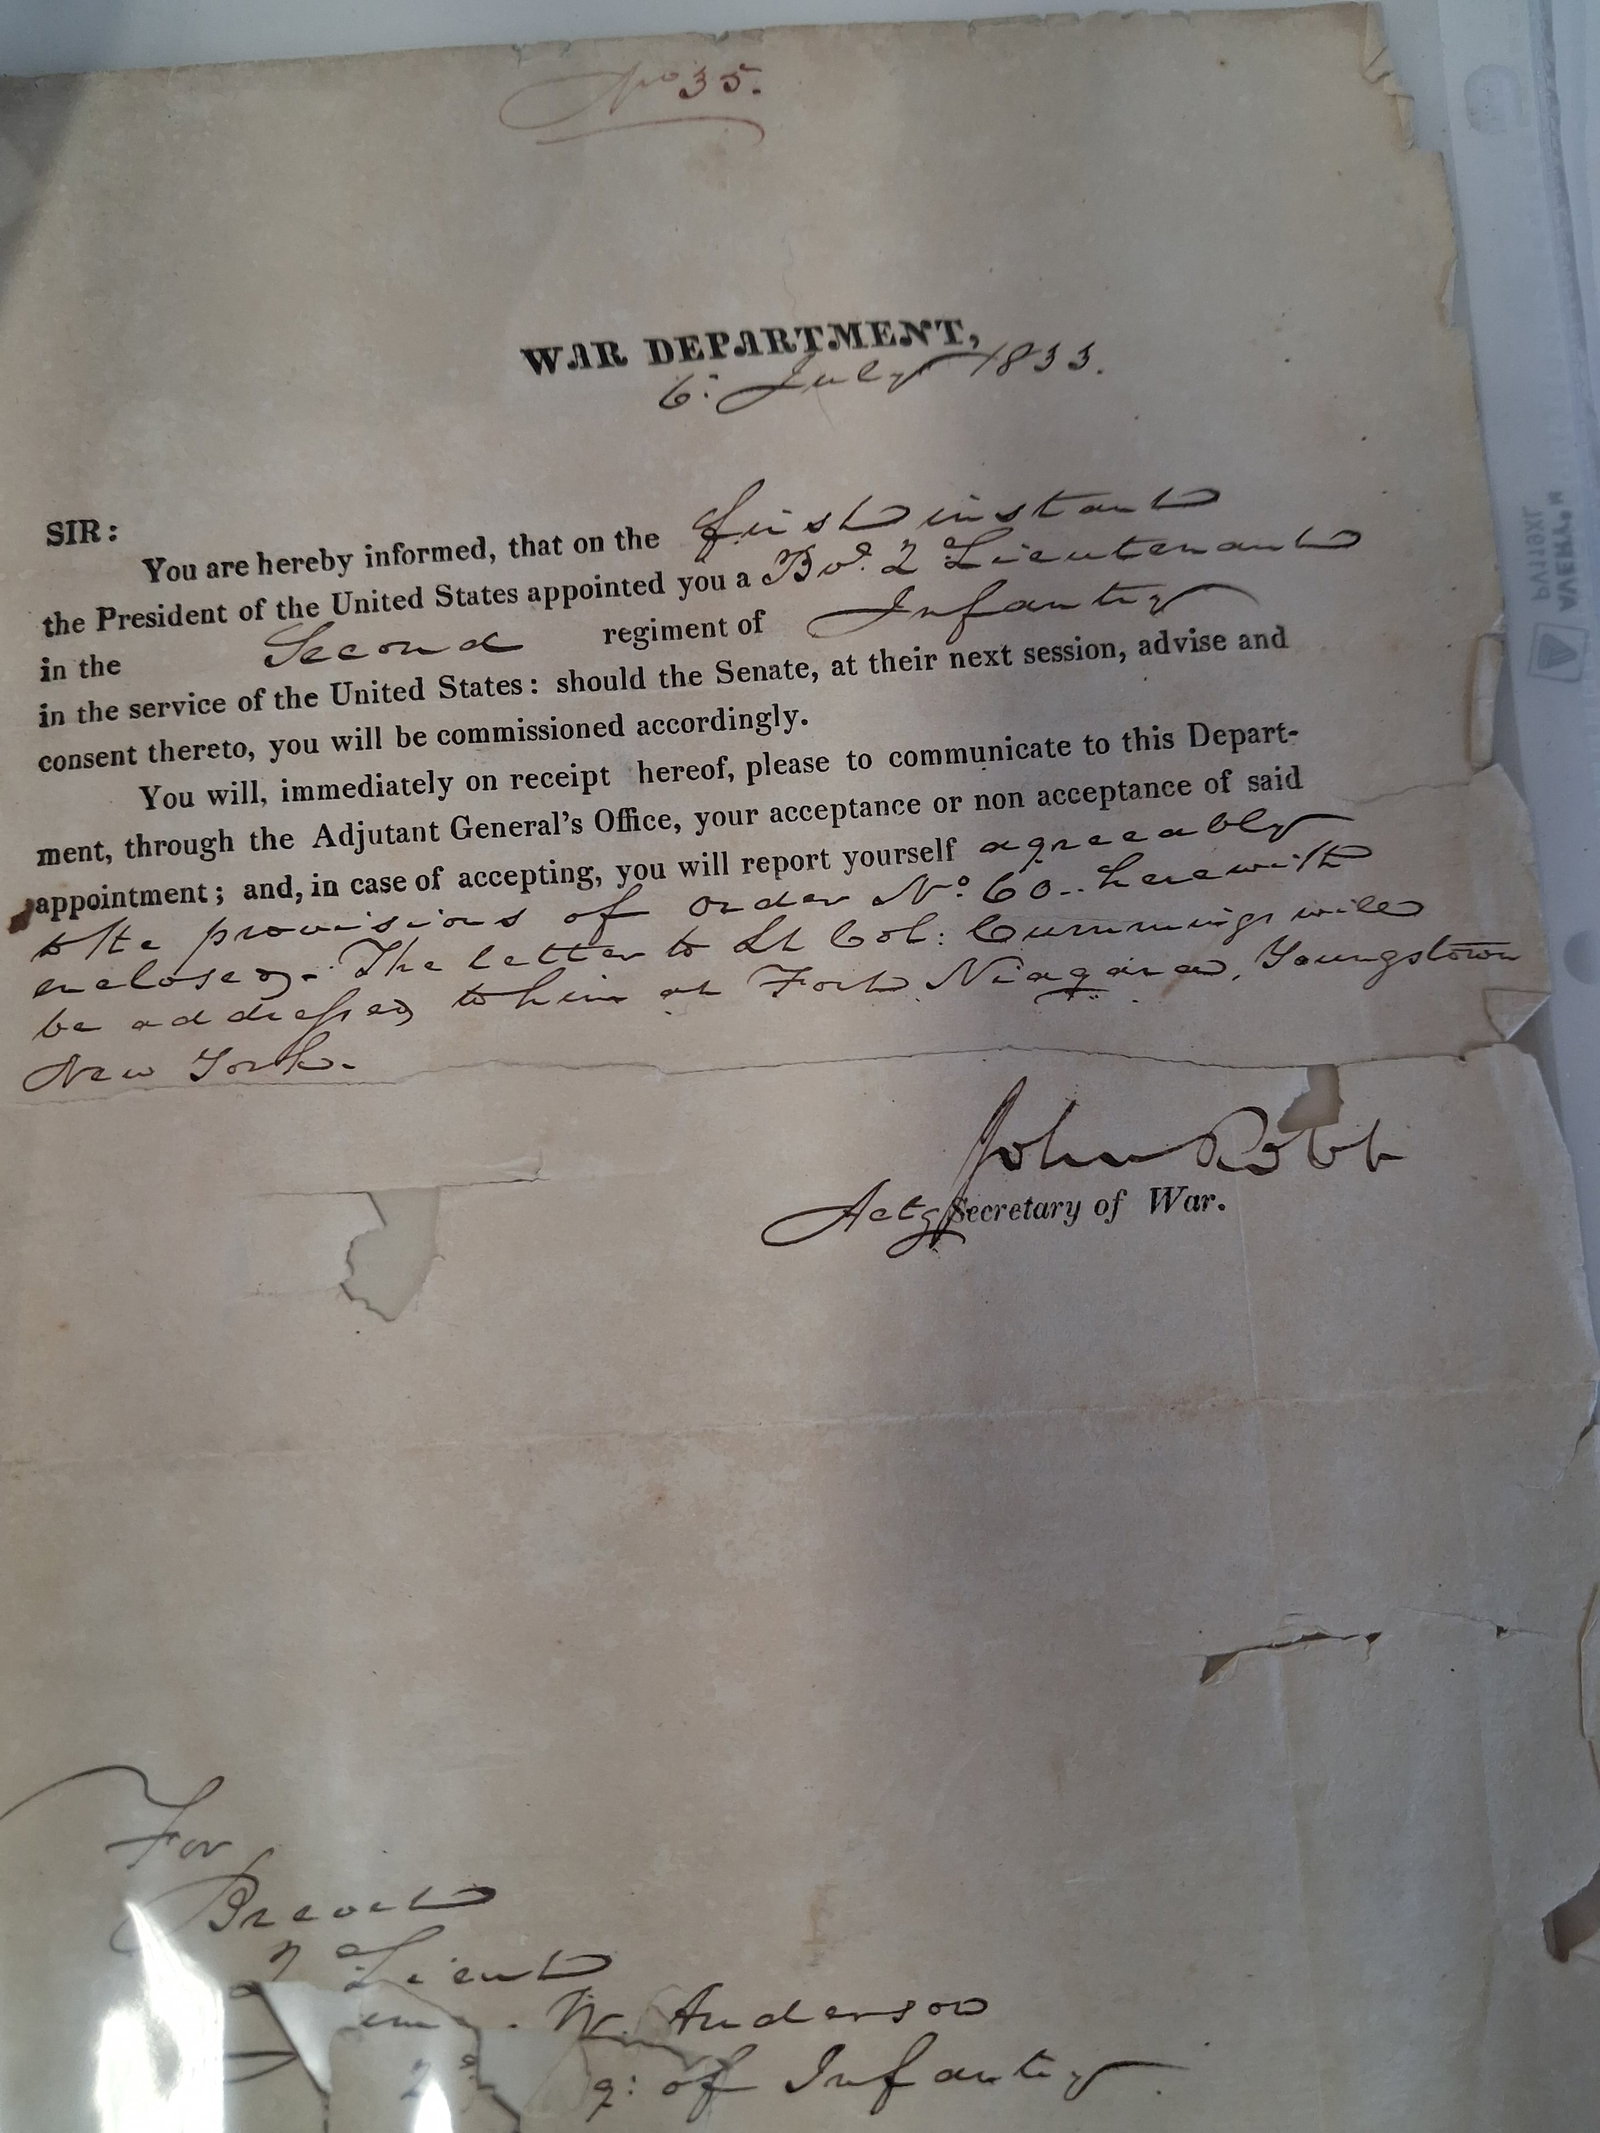 No 35.
WAR DEPARTMENT,
6: July 1833.
SIR:
You are hereby informed, that on the first instant
the President of the United States appointed you a Bvt. 2d Lieutenant
in the Second regiment of Infantry
in the service of the United States: should the Senate, at their next session, advise and
consent thereto, you will be commissioned accordingly.
You will, immediately on receipt hereof, please to communicate to this Depart-
ment, through the Adjutant General's Office, your acceptance or non acceptance of said
appointment; and, in case of accepting, you will report yourself agreeably
to the provisions of order No. 60.. herewith
enclosed.- The letter to Lt Col: Cummings will
be addressed to him at Fort Niagara, Youngstown
New York.
John Robb
Actg Secretary of War.
For
Brevet
2d Lieut
W. Anderson
2d g: of Infantry
AVERY
PV119XL